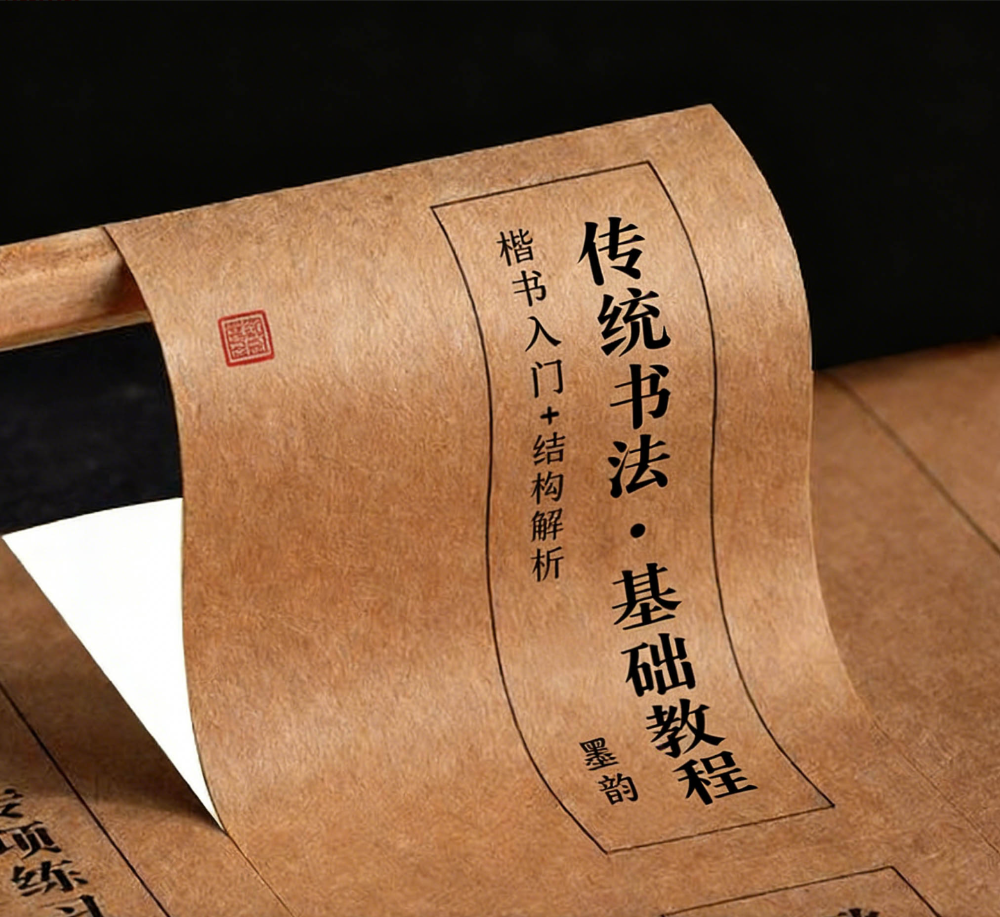 传统书法·基础教程
楷书入门+结构解析
墨韵
项练